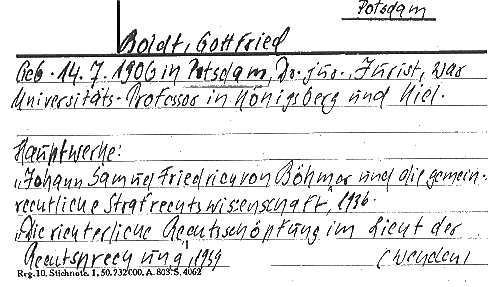 Potsdam
Boldt, Gottfried
Geb. 14.7.1906 in Potsdam, Dr. jur., Jurist, war
Universitäts-Professor in Königsberg und Kiel.
Hauptwerke:
„Johann Samuel Friedrich von Böhmer und die gemein-
rechtliche Strafrechtswissenschaft", 1936.
„Die richterliche Rechtsschöpfung im Licht der
Rechtsprechung", 1939
Reg. 10. Stichnote. 1, 50. 732000. A. 803. S. 4062